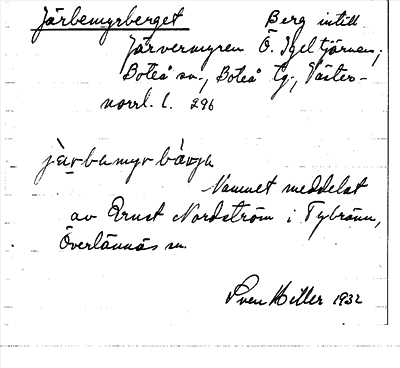 Järbemyrberget Berg intill
Järvemyren Ö. Igeltjärnen;
Boteå sn., Boteå tg., Väster-
norrl. l. 296
jàrbamyrbàrga
Namnet meddelat
av Ernst Nordström i Tybränn,
Överlännäs sn.
Sven Hiller 1932